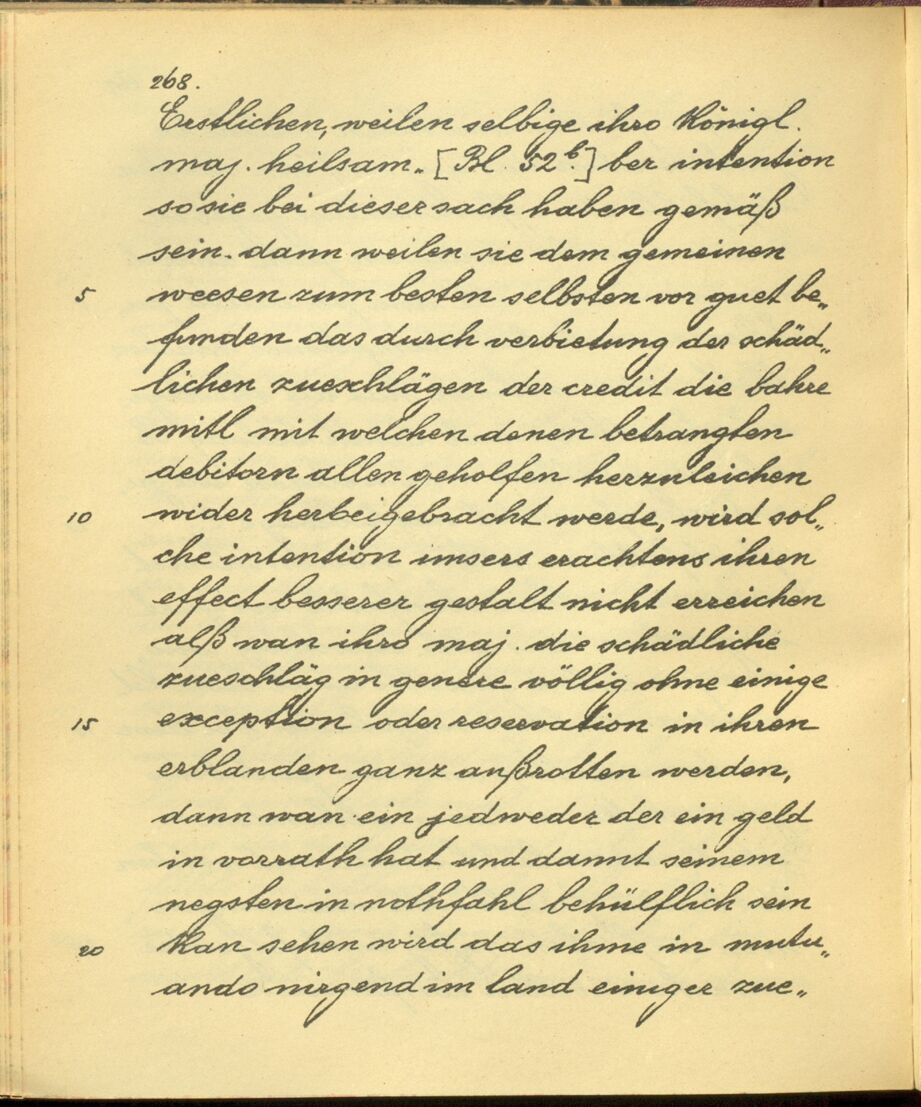 268.
Erstlichen, weilen selbige ihro Königl.
maj. heilsam„ [Bl. 52b.] ber intention
so sie bei dieser sach haben gemäß
sein. dann weilen sie dem gemeinen
5 weesen zum besten selbsten vor guet be„
funden das durch verbietung der schäd„
lichen zueschlägen der credit die bahre
mitl mit welchen denen betrangten
debitorn allen geholfen herzuleichen
10 wider herbeigebracht werde, wird sol„
che intention unsers erachtens ihren
effect besserer gestalt nicht erreichen
alß wan ihro maj. die schädliche
zueschläg in genere völlig ohne einige
15 exception oder reservation in ihren
erblanden ganz außrotten werden,
dann wan ein jedweder der ein geld
in vorrath hat und damit seinem
negsten in nothfahl behülflich sein
20 kan sehen wird das ihme in mutu„
ando nirgend im land einiger zue„